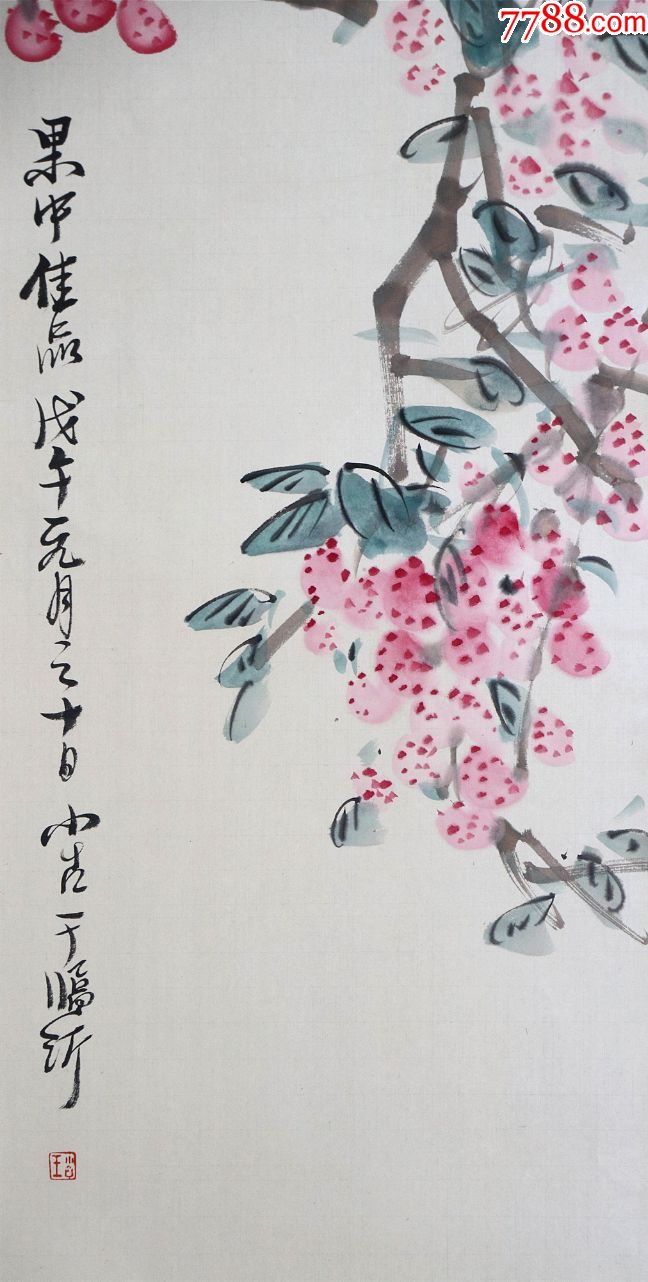 7788.com
果中佳品 戊午元月二十日 小吉于临沂